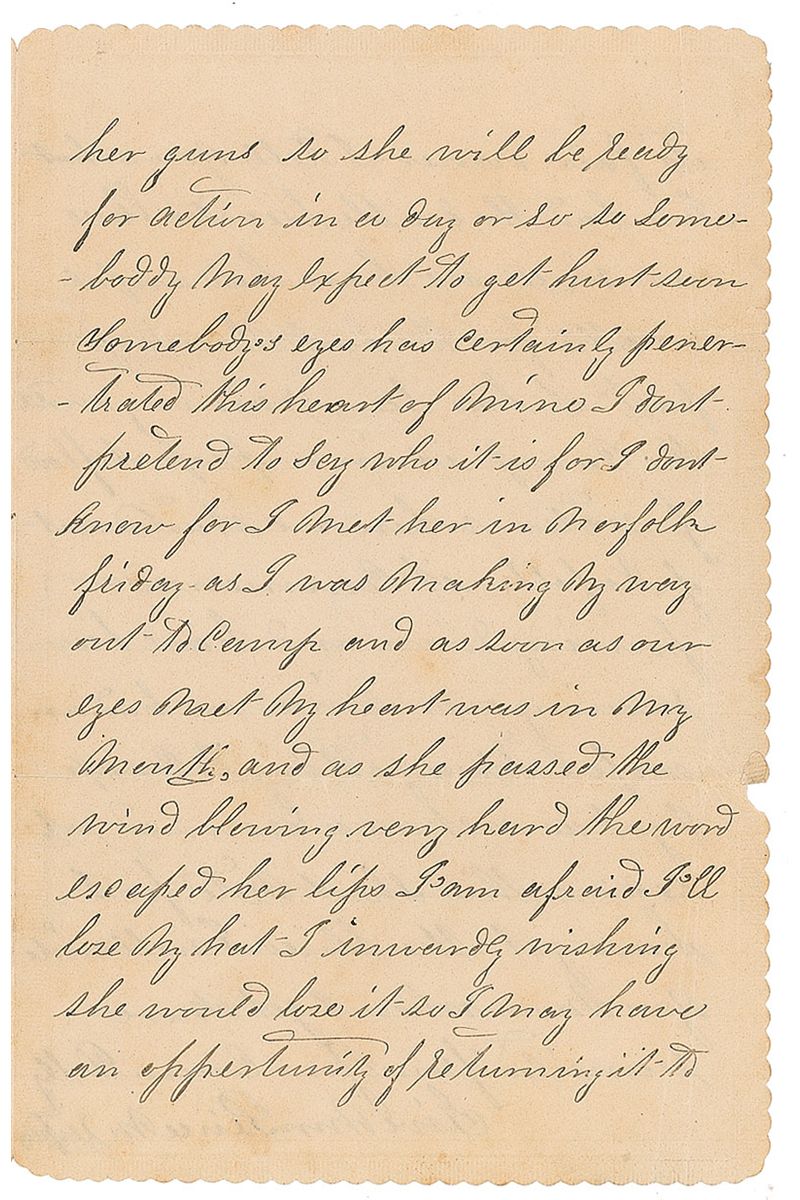 her guns so she will be ready
for action in a day or so so some-
- boddy may expect to get hurt soon
Somebody's eyes has certainly pener-
- trated this heart of mine I dont
pretend to say who it is for I dont
know for I met her in Norfolk
friday as I was making my way
out to Camp and as soon as our
eyes met my heart was in my
mouth, and as she passed the
wind blowing very hard the word
escaped her lips I'am afraid I'll
lose my hat I inwardly wishing
she would lose it so I may have
an oppertunity of returning it to